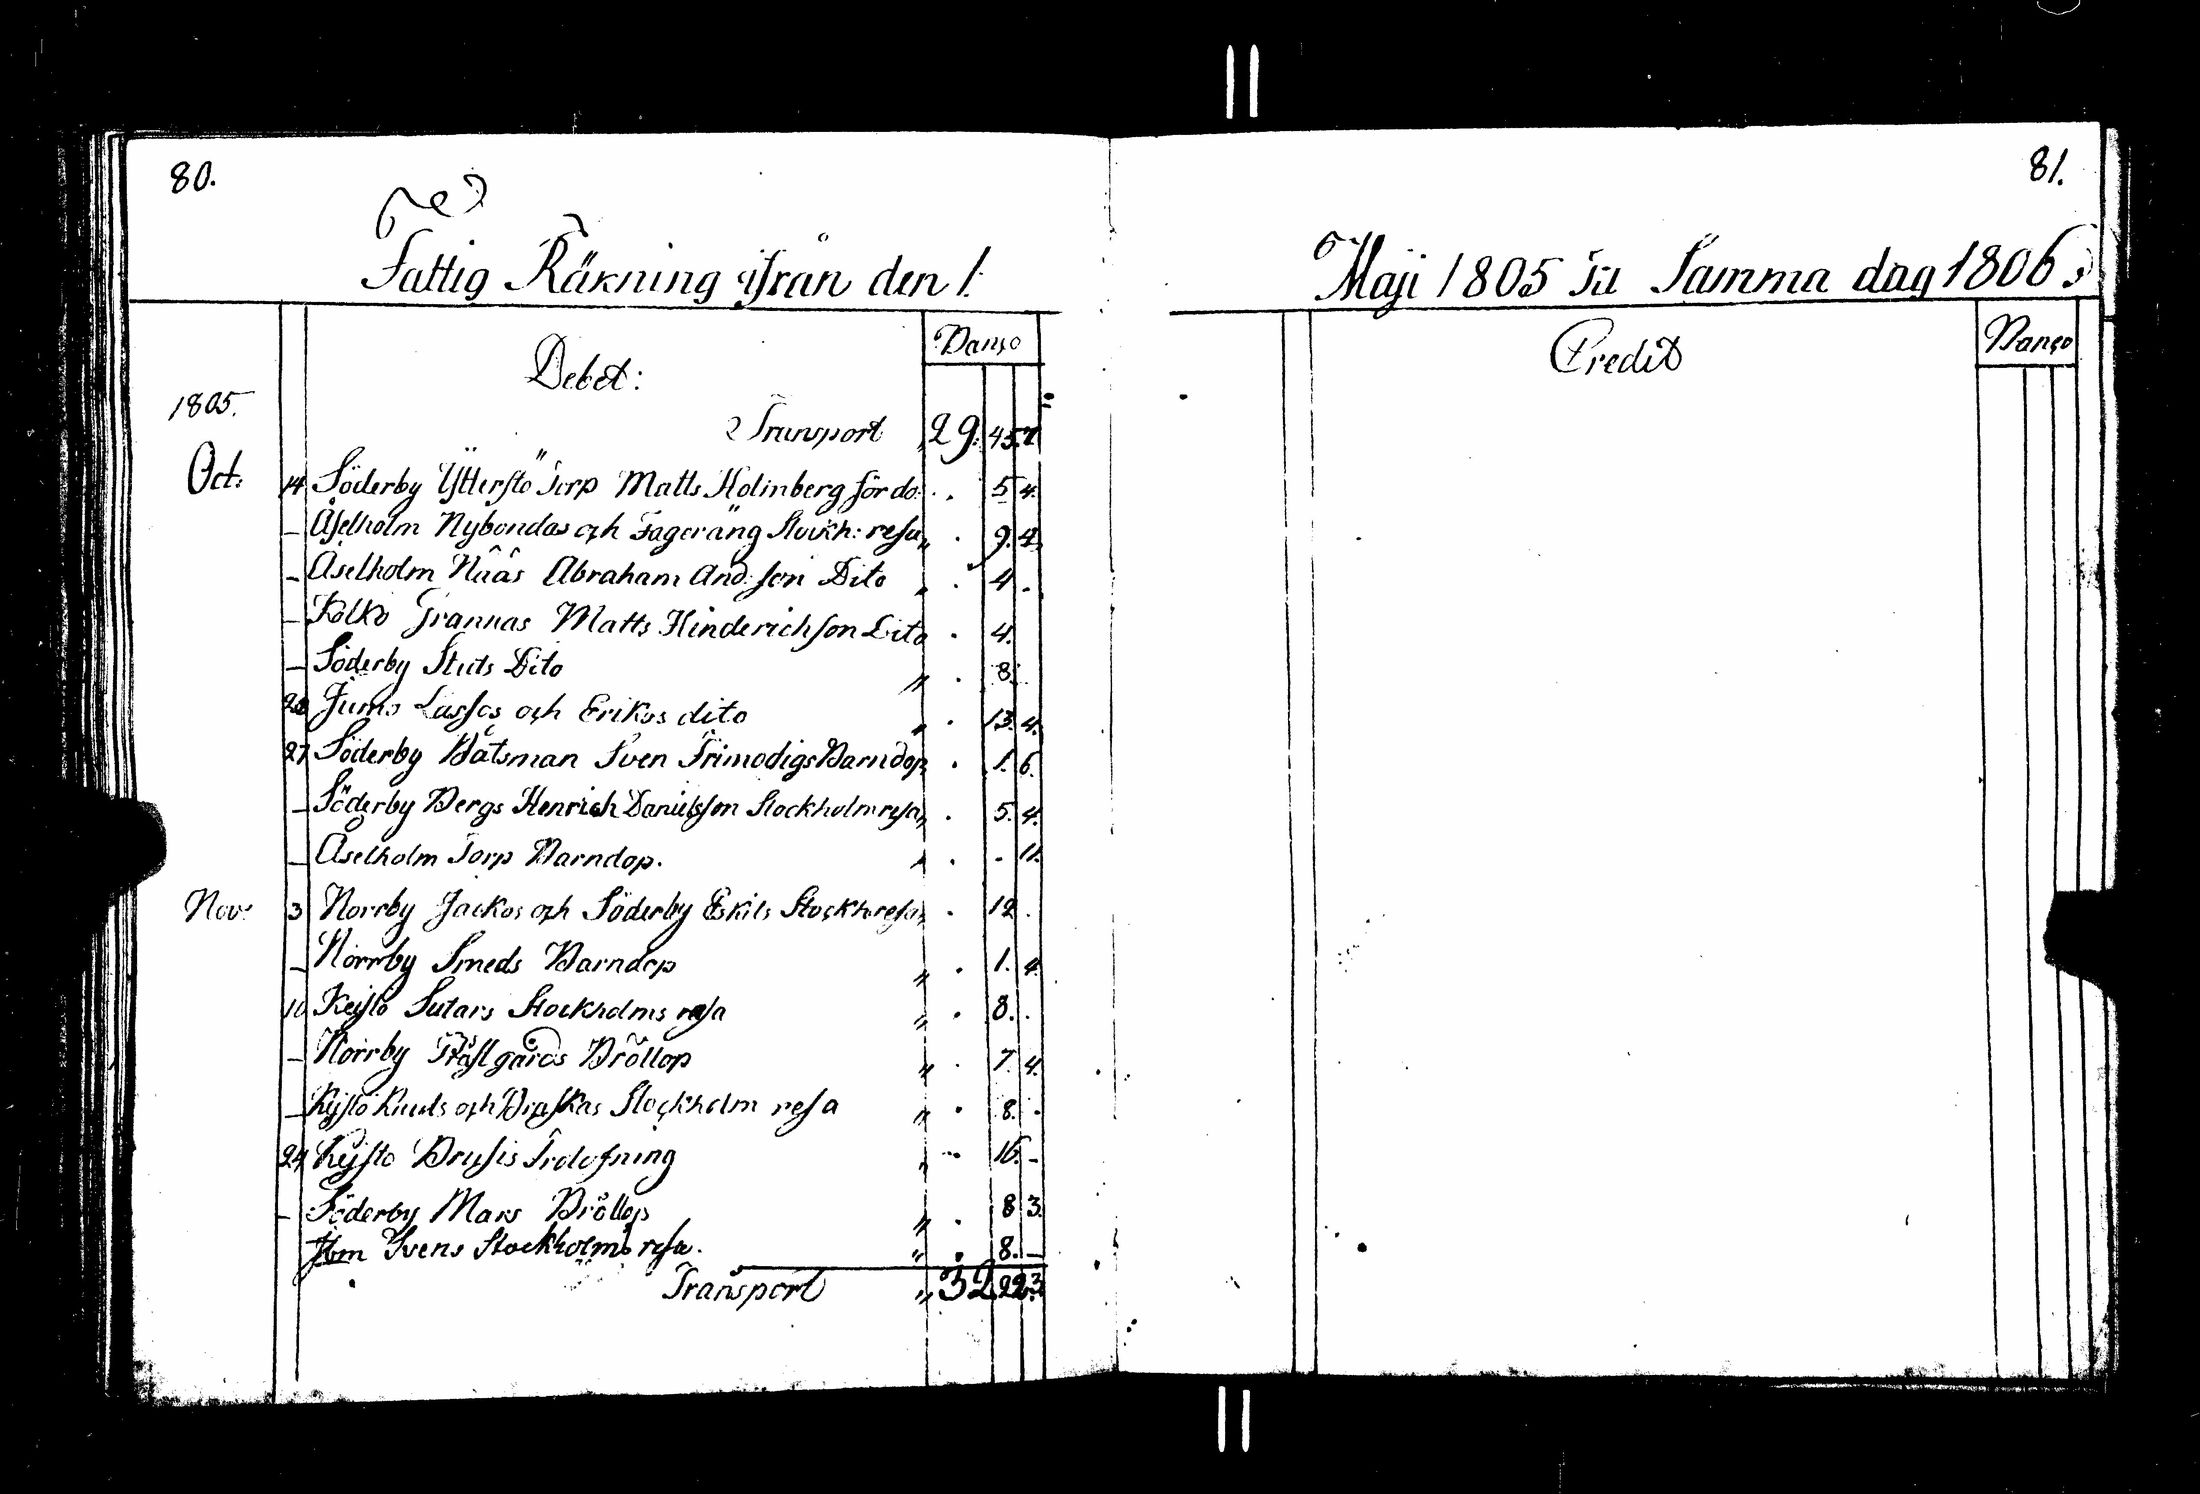 80.
Fattig Räkning ifrån den 1:
Debet:
Banco
1805.
Transport 29. 45. 7
Oct: 14 Söderby Ytterstö Torp Matts Holmberg för do: " . 5. 4.
— Åselholm Nybondas och Fageräng Stockh: resa " . 9. 4.
— Åselholm Nääs Abraham And:son Dito " . 4 .
— Kälkö Grannas Matts Hinderichson Dito . 4.
— Söderby Stuts Dito " . 8.
Jumo Lassos och Erikos dito " . 13. 4.
27 Söderby Båtsman Sven Frimodigs Barndop . 1. 6.
— Söderby Bergs Henrich Danielsson Stockholm resa " . 5. 4.
— Åselholm Torp Barndop. " . - 11.
Nov: 3 Norrby Jackos och Söderby Eskils Stockh resa " . 12 .
— Norrby Smeds Barndop " . 1. 4.
10 Keistö Sutars Stockholms resa " . 8. .
— Norrby Prästgårds Bröllop " . 7. 4.
— Kejstö Knuts och Braskas Stockholm resa " . 8. .
24 Kejstö Brusis Trolofning " . 16. -
— Söderby Mars Bröllop " . 8 3.
Jum Svens Stockholms resa. " . 8. —
Transport " 32. 22. 3
81.
Maji 1805 Til Samma dag 1806
Credit
Banco